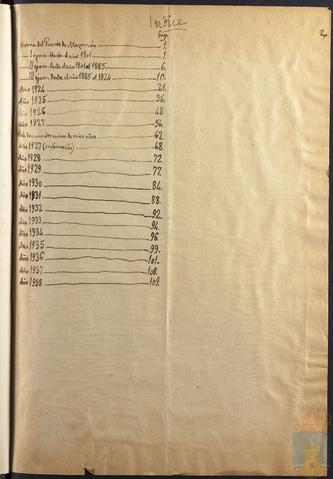 Indice
Pags
Pags
Historia del Puerto de Mazarrón 1.
I época hasta el año 1901 1.
II época desde el año 1901 al 1885 6.
III época desde el año 1885 al 1924 10.
Año 1924 21.
Año 1925 36.
Año 1926 48.
Año 1927 56.
de varios años 62
Año 1927 (continuación) 68.
Año 1928 72.
Año 1929 77.
Año 1930 84.
Año 1931 88.
Año 1932 92.
Año 1933 94.
Año 1934 96.
Año 1935 99.
Año 1936 101.
Año 1937 108.
Año 1938 109.